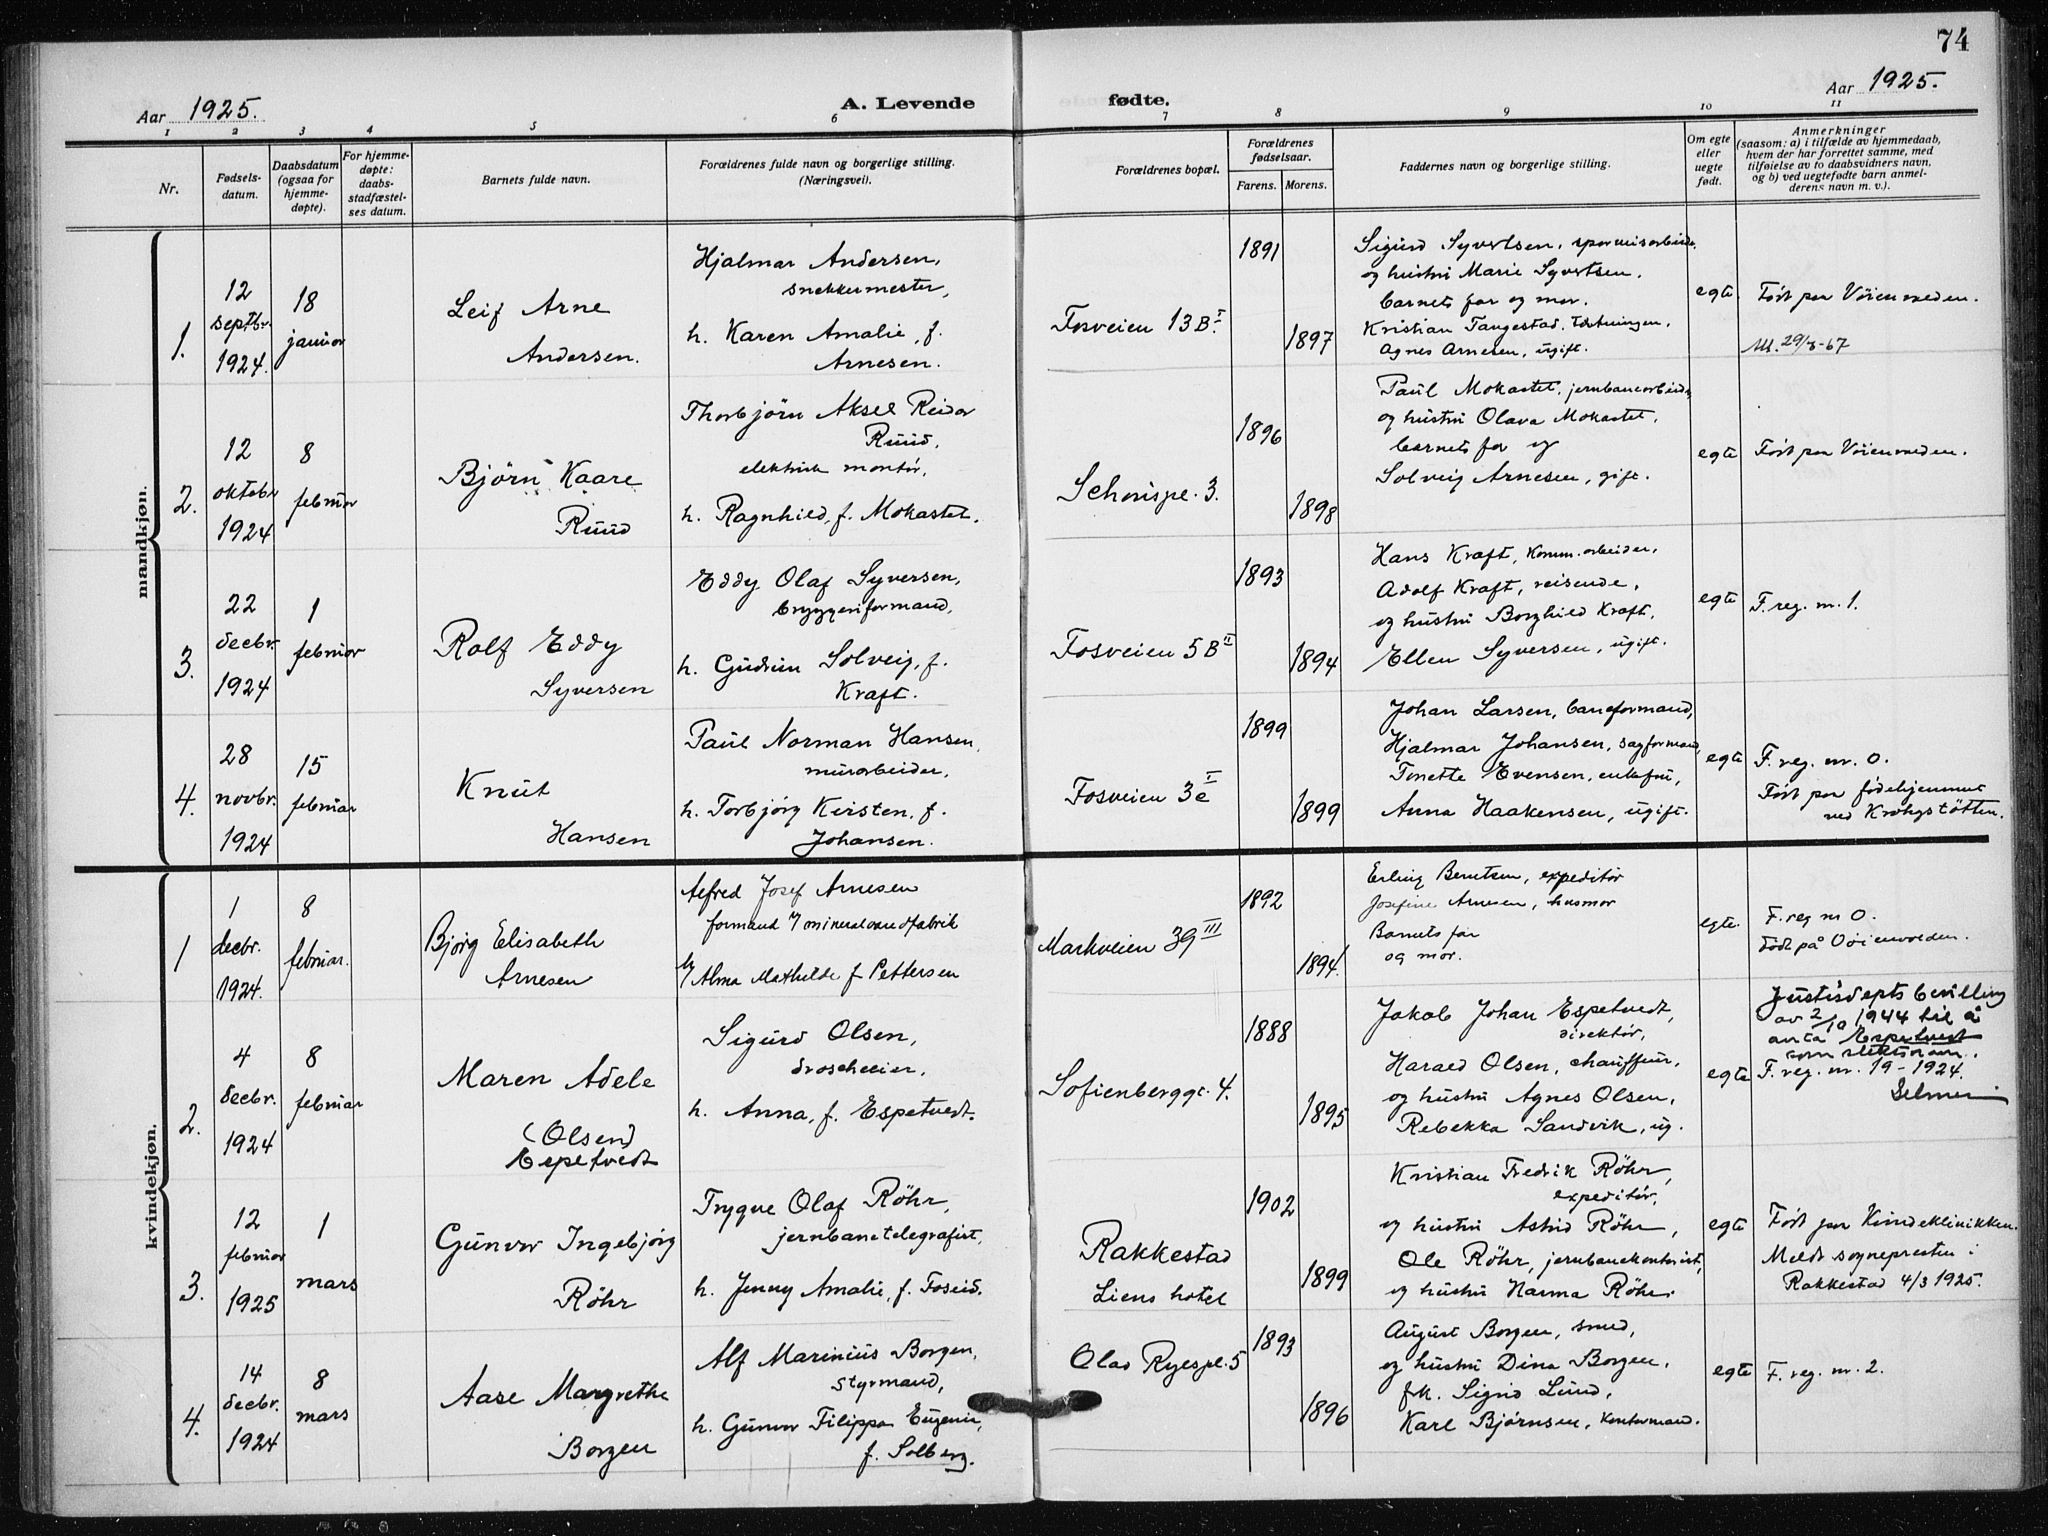 74
Aar 1925.
A. Levende
fødte.
Aar 1925.
1 2 3 4 5 6 7 8 9 10 11
Nr.
Fødsels-
datum.
Daabsdatum
(ogsaa for
hjemme-
døpte).
For hjemme-
døpte:
daabs-
stadfæstel-
ses datum.
Barnets fulde navn.
Forældrenes fulde navn og borgerlige stilling.
(Næringsvei).
Forældrenes bopæl.
Forældrenes
fødselsaar.
Farens. Morens.
Faddernes navn og borgerlige stilling.
Om egte
eller
uegte
født.
Anmerkninger
(saasom: a) i tilfælde av hjemmedaab,
hvem der har forrettet samme, med
tilføielse av to daabsvidners navn,
og b) ved uegtefødte barn anmel-
derens navn m. v.).
mandkjøn.
1.
12
septbr.
1924.
18
januar
Leif Arne
Andersen.
Hjalmar Andersen,
snekkermester,
h. Karen Amalie, f.
Arnesen.
Fosveien 13 B I.
1891
1897
Sigurd Syvertsen, sporveisarbeider
og hustru Marie Syvertsen.
barnets far og mor.
Kristian Tangestad,
Agnes Arnesen, ugift.
egte.
Født paa Vøienvolden.
29/8-67
2.
12
oktobr
1924
8
februar
Bjørn Kaare
Ruud
Thorbjörn Aksel Reidar
Ruud,
elektrisk montör,
h. Ragnhild, f. Mokastet.
Schouspl. 3.
1896
1898
Paul Mokastet, jernbanearbeider
og hustru Olava Mokastet,
barnets far og
Solveig Arnesen, gift.
egte
Født paa Vøienvolden.
3.
22
decbr.
1924
1
februar
Rolf Eddy
Syversen
Eddy Olaf Syversen,
bryggeriformand,
h. Gudrun Solveig, f.
Kraft.
Fosveien 5 B II
1893
1894
Hans Kraft, komm. arbeider,
Adolf Kraft, reisende,
og hustru Borghild Kraft,
Ellen Syversen, ugift.
egte
F. reg. nr. 1.
4.
28
novbr.
1924
15
februar
Knut
Hansen
Paul Norman Hansen,
murarbeider,
h. Torbjørg Kirsten, f.
Johansen.
Fosveien 3c I
1899
1899
Johan Larsen, baneformand,
Hjalmar Johansen, sagformand,
Tonette Evensen, enkefru,
Anna Haakensen, ugift.
egte
F. reg. nr. 0.
Født paa fødehjemmet
ved Krohgstøtten.
kvindekjøn.
1
1
decbr.
1924.
8
februar.
Bjørg Elisabeth
Arnesen
Alfred Josef Arnesen
formand v/ mineralvandfabrik
h/ Alma Mathilde f Pettersen
Markveien 39 III
1892
1894.
Erling Berntsen, expeditør
Josefine Arnesen, husmor
Barnets far
og mor.
egte.
F. reg nr 0.
Født på Vøienvolden.
2.
4
decbr.
1924
8
februar
Maren Adele
(Olsen)
Espetvedt
Sigurd Olsen,
droscheeier,
h. Anna, f. Espetvedt.
Sofienberggt. 4.
1888
1895
Jakob Johan Espetvedt,
direktør,
Harald Olsen, chauffeur,
og hustru Agnes Olsen,
Rebekka Sandvik, ug.
egte
Justisdepts bevilling
av 2/10 1944 til å
anta Espetvedt
som slektsnavn.
F. reg. nr. 19 - 1924.
Selmer
3.
12
februar
1925
1
mars
Gunvor Ingebjørg
Röhr
Trygve Olaf Röhr,
jernbanetelegrafist,
h. Jenny Amalie, f. Foseid.
Rakkestad
Liens hotel
1902
1899
Kristian Fredrik Röhr,
expeditør,
og hustru Astrid Röhr,
Ole Röhr, jernbanekontorist,
og hustru Harma Röhr.
egte
Født paa Kvindeklinikken.
Meldt sognepresten i
Rakkestad 4/3 1925.
4.
14
decbr.
1924
8
mars
Aase Margrethe
Borgen
Alf Marinius Borgen,
styrmand,
h. Gunvor Filippa Eugenie,
f. Solberg.
Olav Ryespl. 5
1893
1896
August Borgen, smed,
og hustru Dina Borgen,
frk. Sigrid Lund,
Karl Bjørnsen, kontormand.
egte
F. reg. nr. 2.